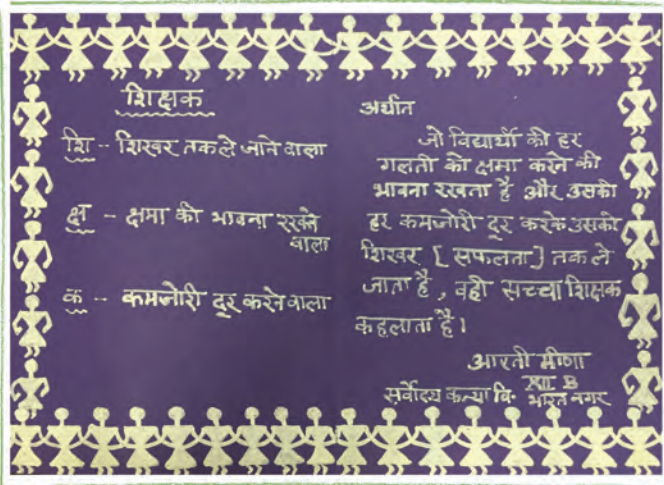 शिक्षक
शि -- शिखर तक ले जाने वाला
क्ष - क्षमा की भावना रखने
वाला
क -- कमजोरी दूर करने वाला
अर्थात
जो विद्यार्थी की हर
गलती को क्षमा करने की
भावना रखता है और उसको
हर कमजोरी दूर करके उसको
शिखर [ सफलता ] तक ले
जाता है , वही सच्चा शिक्षक
कहलाता है।
आरती मीणा
XII B
सर्वोदय कन्या वि॰ भारत नगर